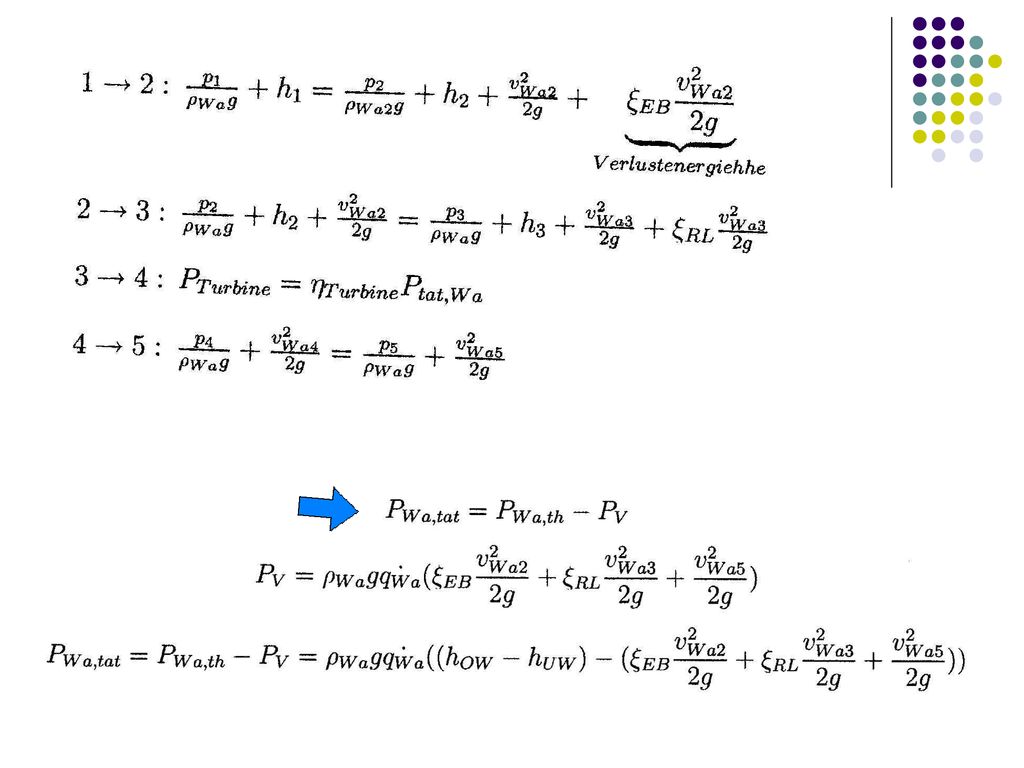 1 → 2 : p₁/(ρ_Wa g) + h₁ = p₂/(ρ_Wa2 g) + h₂ + v²_Wa2/(2g) + ξ_EB v²_Wa2/(2g)
Verlustenergiehhe
2 → 3 : p₂/(ρ_Wa g) + h₂ + v²_Wa2/(2g) = p₃/(ρ_Wa g) + h₃ + v²_Wa3/(2g) + ξ_RL v²_Wa3/(2g)
3 → 4 : P_Turbine = η_Turbine P_tat,Wa
4 → 5 : p₄/(ρ_Wa g) + v²_Wa4/(2g) = p₅/(ρ_Wa g) + v²_Wa5/(2g)
P_Wa,tat = P_Wa,th − P_V
P_V = ρ_Wa g q_Ẇa (ξ_EB v²_Wa2/(2g) + ξ_RL v²_Wa3/(2g) + v²_Wa5/(2g))
P_Wa,tat = P_Wa,th − P_V = ρ_Wa g q_Ẇa ((h_OW − h_UW) − (ξ_EB v²_Wa2/(2g) + ξ_RL v²_Wa3/(2g) + v²_Wa5/(2g)))